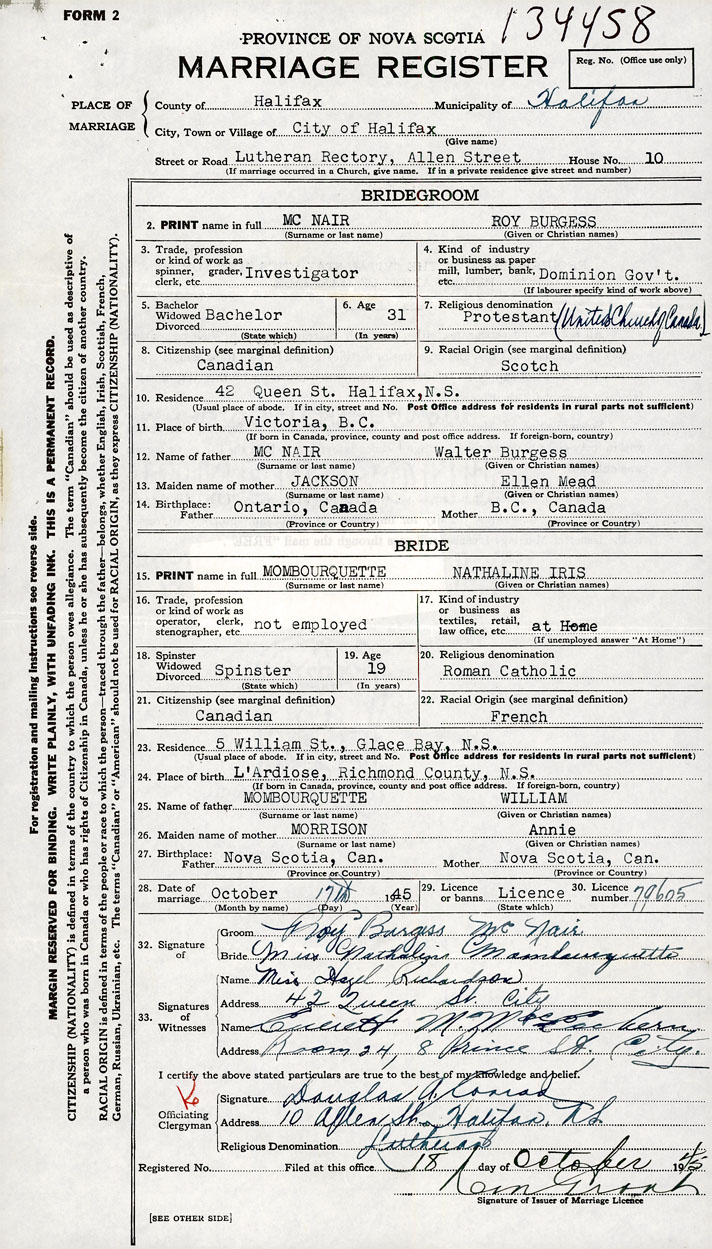 FORM 2
134458
PROVINCE OF NOVA SCOTIA
MARRIAGE REGISTER
Reg. No. (Office use only)
PLACE OF MARRIAGE
County of Halifax Municipality of Halifax
City, Town or Village of City of Halifax
(Give name)
Street or Road Lutheran Rectory, Allen Street House No. 10
(If marriage occurred in a Church, give name. If in a private residence give street and number)
BRIDEGROOM
2. PRINT name in full MC NAIR ROY BURGESS
(Surname or last name) (Given or Christian names)
3. Trade, profession or kind of work as spinner, grader, clerk, etc. Investigator
4. Kind of industry or business as paper mill, lumber, bank, etc. Dominion Gov't.
(If labourer specify kind of work above)
5. Bachelor Widowed Divorced Bachelor
(State which)
6. Age 31
(In years)
7. Religious denomination Protestant (United Church of Canada)
8. Citizenship (see marginal definition) Canadian
9. Racial Origin (see marginal definition) Scotch
10. Residence 42 Queen St. Halifax, N.S.
(Usual place of abode. If in city, street and No. Post Office address for residents in rural parts not sufficient)
11. Place of birth Victoria, B.C.
(If born in Canada, province, county and post office address. If foreign-born, country)
12. Name of father MC NAIR Walter Burgess
(Surname or last name) (Given or Christian names)
13. Maiden name of mother JACKSON Ellen Mead
(Surname or last name) (Given or Christian names)
14. Birthplace: Father Ontario, Canada Mother B.C., Canada
(Province or Country) (Province or Country)
BRIDE
15. PRINT name in full MOMBOURQUETTE NATHALINE IRIS
(Surname or last name) (Given or Christian names)
16. Trade, profession or kind of work as operator, clerk, stenographer, etc. not employed
17. Kind of industry or business as textiles, retail, law office, etc. at Home
(If unemployed answer "At Home")
18. Spinster Widowed Divorced Spinster
(State which)
19. Age 19
(In years)
20. Religious denomination Roman Catholic
21. Citizenship (see marginal definition) Canadian
22. Racial Origin (see marginal definition) French
23. Residence 5 William St., Glace Bay, N.S.
(Usual place of abode. If in city, street and No. Post Office address for residents in rural parts not sufficient)
24. Place of birth L'Ardiose, Richmond County, N.S.
(If born in Canada, province, county and post office address. If foreign-born, country)
25. Name of father MOMBOURQUETTE WILLIAM
(Surname or last name) (Given or Christian names)
26. Maiden name of mother MORRISON Annie
(Surname or last name) (Given or Christian names)
27. Birthplace: Father Nova Scotia, Can. Mother Nova Scotia, Can.
(Province or Country) (Province or Country)
28. Date of marriage October 17th 1945
(Month by name) (Day) (Year)
29. Licence or banns Licence
(State which)
30. Licence number 79605
32. Signature of
Groom Roy Burgess Mc Nair
Bride Miss Nathaline Mombourquette
33. Signatures of Witnesses
Name Miss Hazel Richardson
Address 42 Queen St. City
Name Everett M.
Address Room 24, 8 Prince St. City.
I certify the above stated particulars are true to the best of my knowledge and belief.
Officiating Clergyman
Signature Douglas A. Conrad
Address 10 Allen St., Halifax, N.S.
Religious Denomination Lutheran
Registered No. Filed at this office 18 day of October 1945
Signature of Issuer of Marriage Licence
[SEE OTHER SIDE]
For registration and mailing instructions see reverse side.
MARGIN RESERVED FOR BINDING. WRITE PLAINLY, WITH UNFADING INK. THIS IS A PERMANENT RECORD.
CITIZENSHIP (NATIONALITY) is defined in terms of the country to which the person owes allegiance. The term "Canadian" should be used as descriptive of
a person who was born in Canada or who has rights of Citizenship in Canada, unless he or she has subsequently become the citizen of another country.
RACIAL ORIGIN is defined in terms of the people or race to which the person—traced through the father—belongs, whether English, Irish, Scottish, French,
German, Russian, Ukrainian, etc. The terms "Canadian" or "American" should not be used for RACIAL ORIGIN, as they express CITIZENSHIP (NATIONALITY).